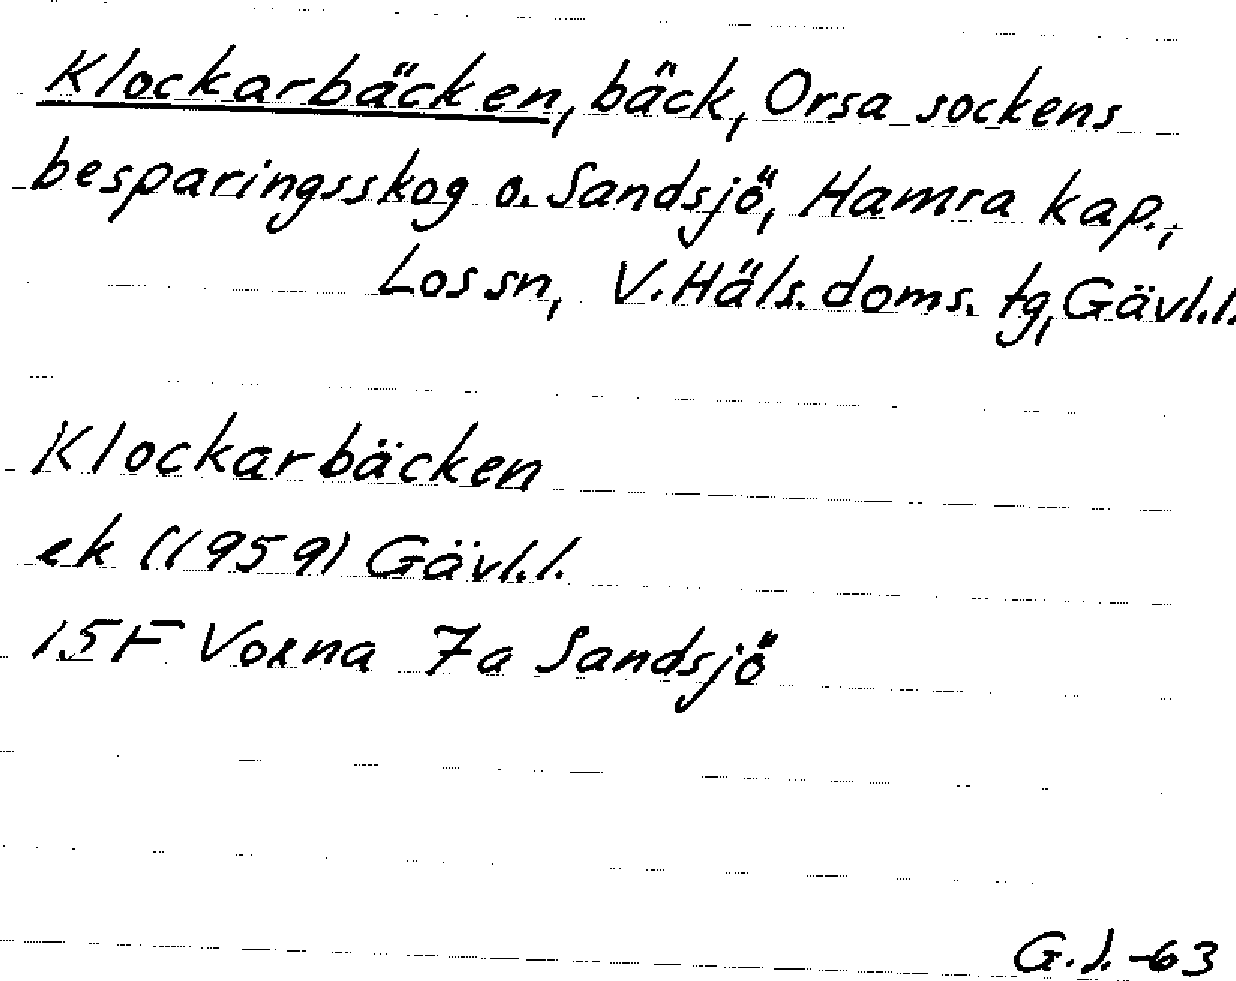 Klockarbäcken, bäck, Orsa sockens
besparingsskog o. Sandsjö, Hamra kap.,
Los sn, V. Häls. doms. tg, Gävl.l.
Klockarbäcken
ek (1959) Gävl.l.
15F Voxna 7a Sandsjö
G.J.-63